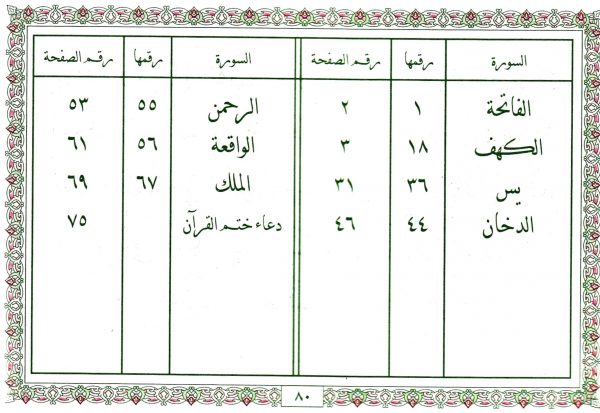 السورة رقمها رقم الصفحة السورة رقمها رقم الصفحة
الفاتحة ١ ٢ الرحمن ٥٥ ٥٣
الكهف ١٨ ٣ الواقعة ٥٦ ٦١
يس ٣٦ ٣١ الملك ٦٧ ٦٩
الدخان ٤٤ ٤٦ دعاء ختم القرآن ٧٥
٨٠